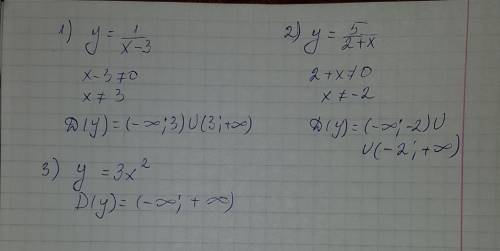 1) y = 1/(x-3)
x-3≠0
x≠3
D(y)=(-∞;3)U(3;+∞)
2) y = 5/(2+x)
2+x≠0
x≠-2
D(y)=(-∞;-2)U
U(-2;+∞)
3) y = 3x²
D(y)=(-∞;+∞)